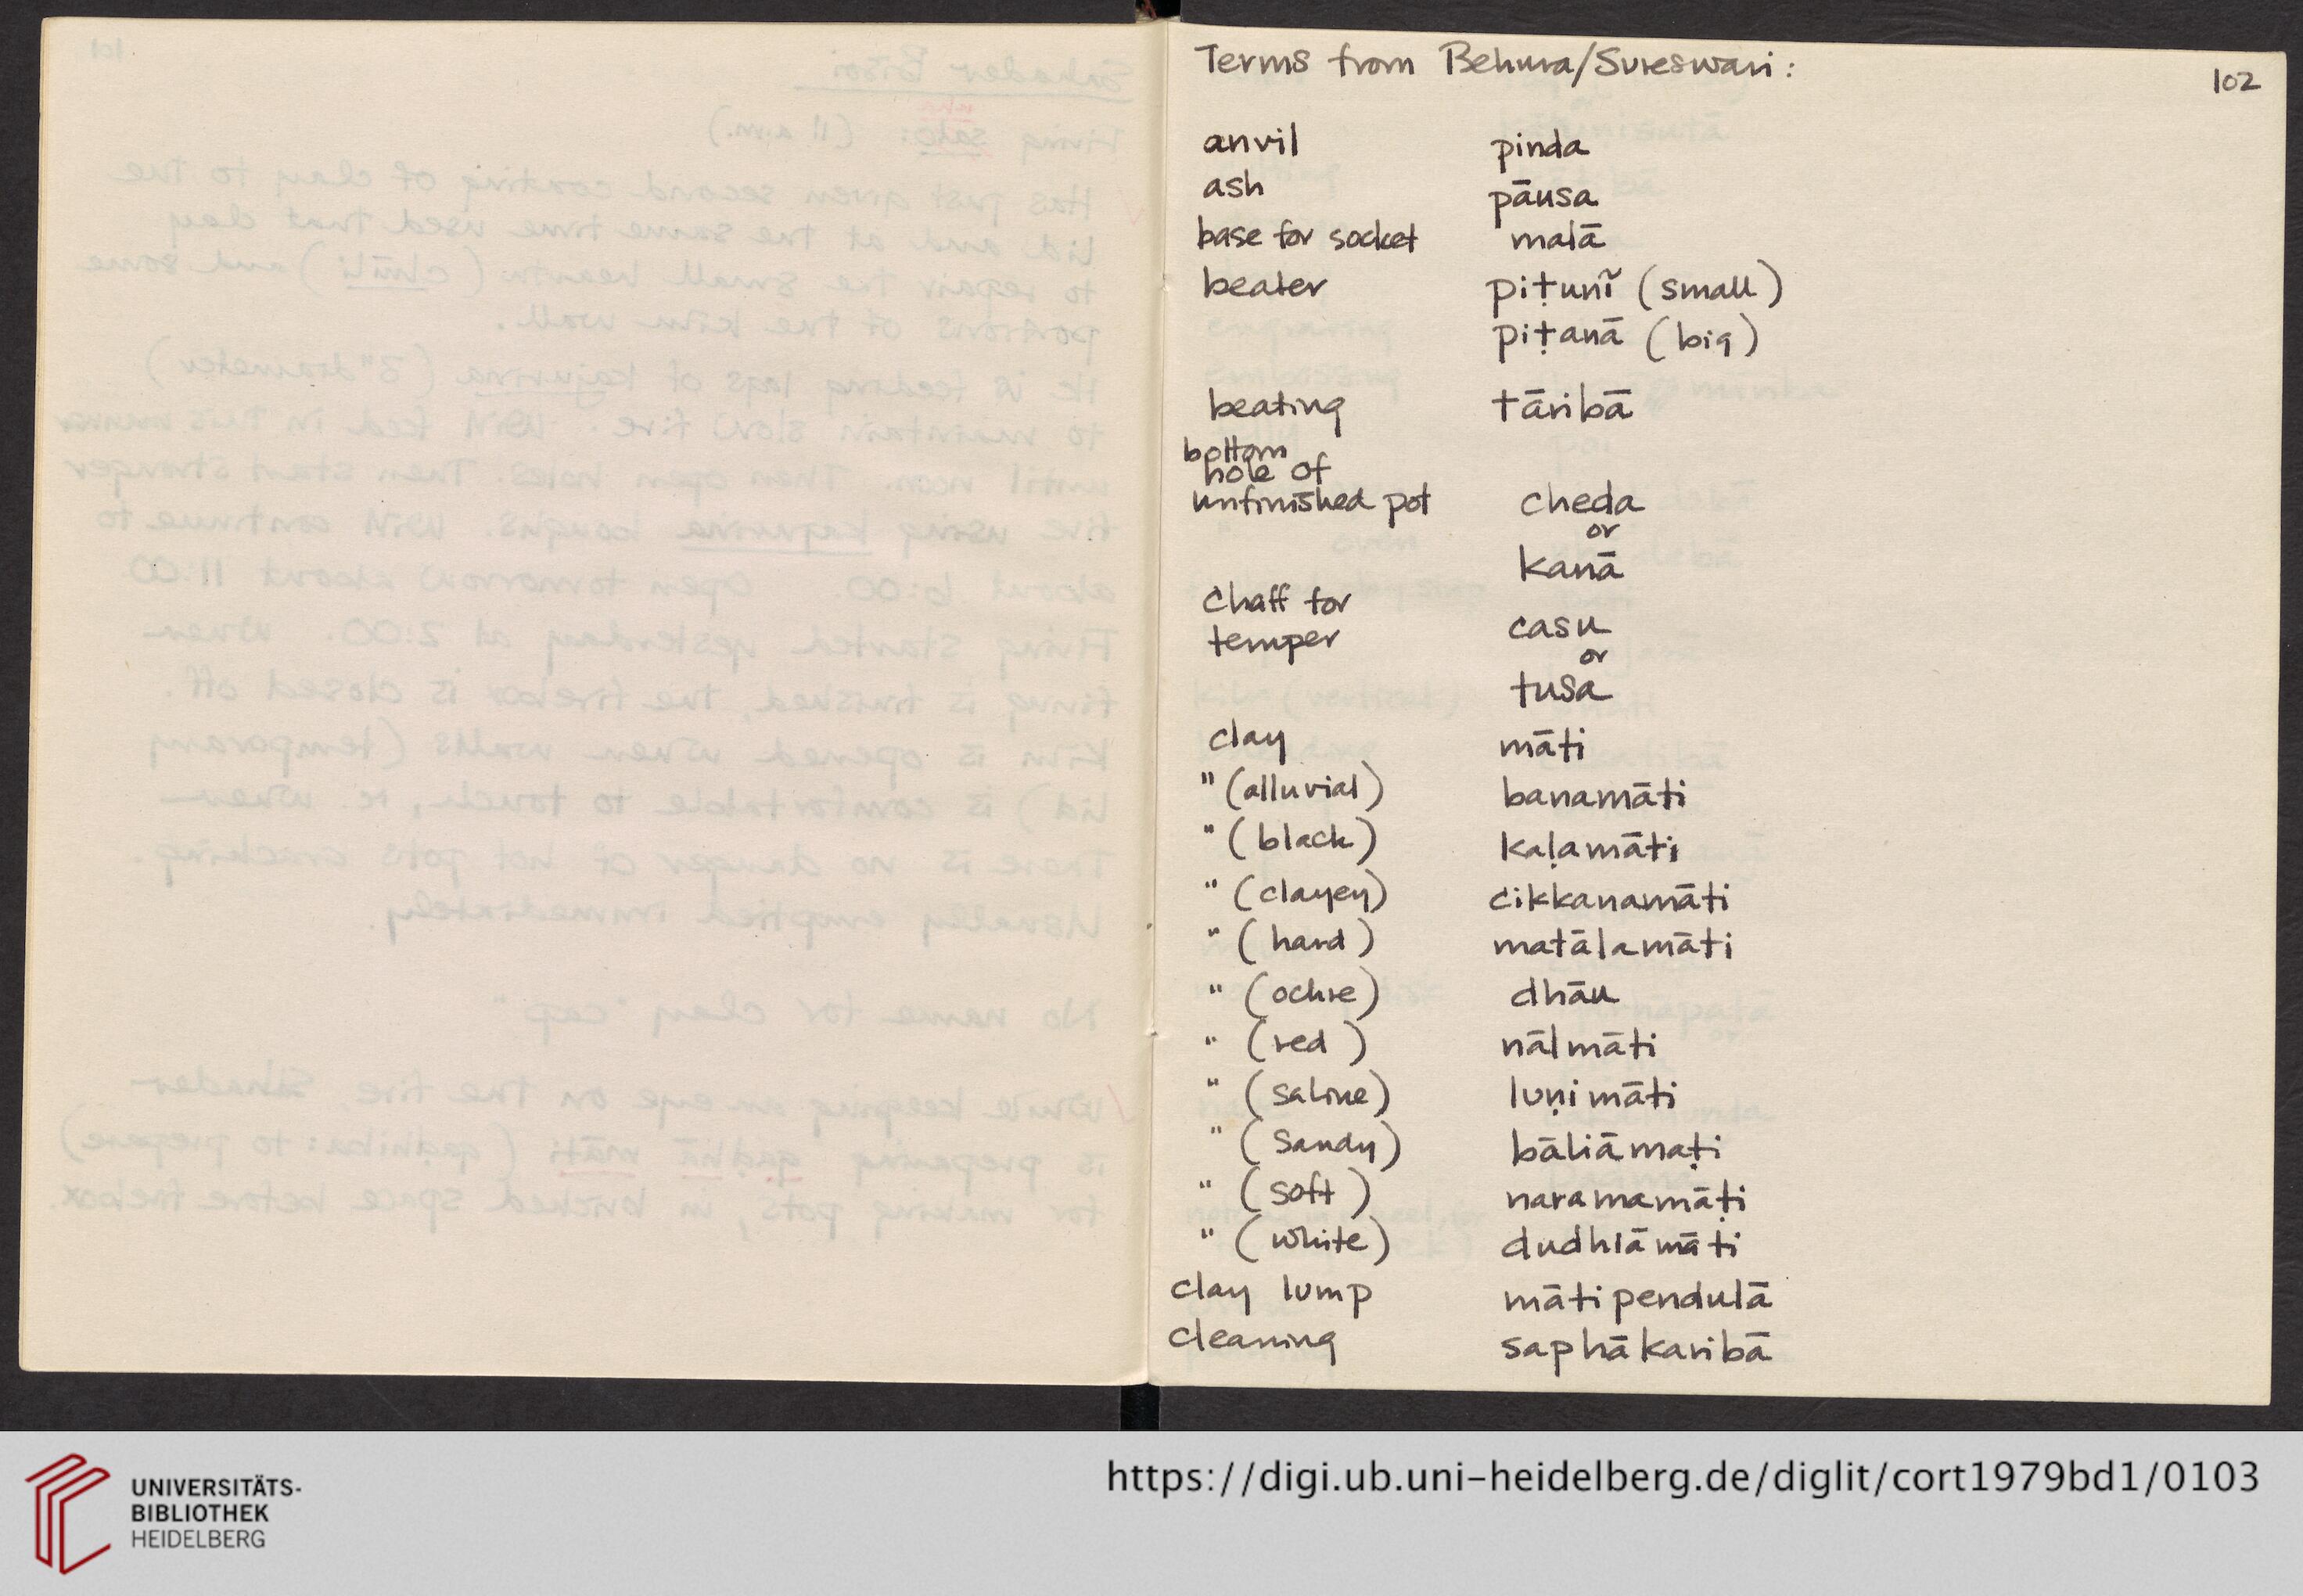 Terms from Behura/Sureswari:
102
anvil pinda
ash pāusa
base for socket malā
beater piṭunĩ (small)
piṭanā (big)
beating tāribā
bottom
hole of
unfinished pot cheda
or
kanā
chaff for
temper casu
or
tusa
clay māti
" (alluvial) banamāti
" (black) kaḷamāti
" (clayey) cikkanamāti
" (hard) matālamāti
" (ochre) dhāu
" (red) nālmāti
" (saline) luṇimāti
" (sandy) bāliāmaṭi
" (soft) naramamāṭi
" (white) dudhiāmāti
clay lump mātipendulā
cleaning saphākaribā
UNIVERSITÄTS-
BIBLIOTHEK
HEIDELBERG
https://digi.ub.uni-heidelberg.de/diglit/cort1979bd1/0103